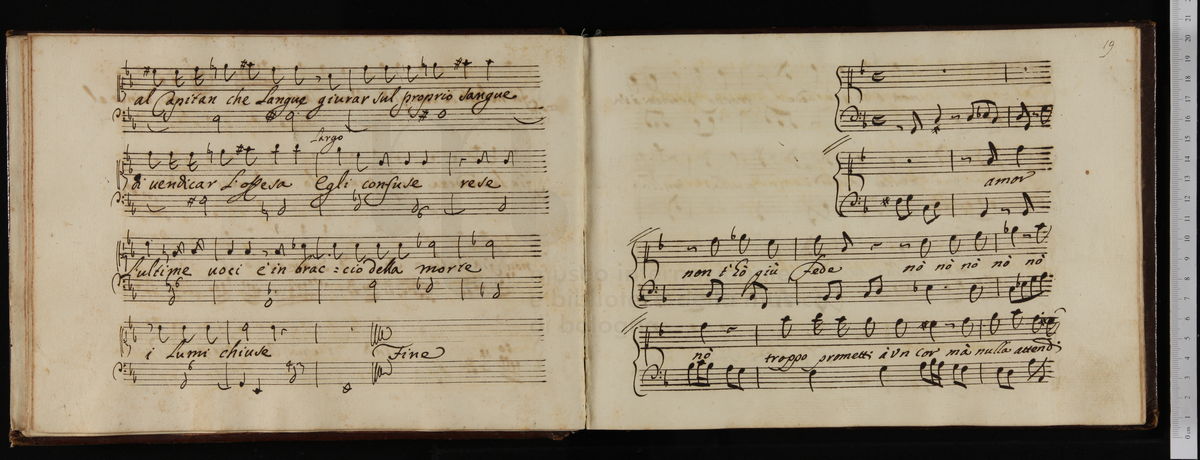 al Capitan che Langue giurar sul proprio sangue
Largo
di vendicar L'offesa Egli confuse rese
L'ultime voci è in brac :cio della morte
i Lumi chiuse Fine
19
amor
non t'hò più fede nò nò nò nò nò
nò troppo prometti à Vn Cor mà nulla attendi